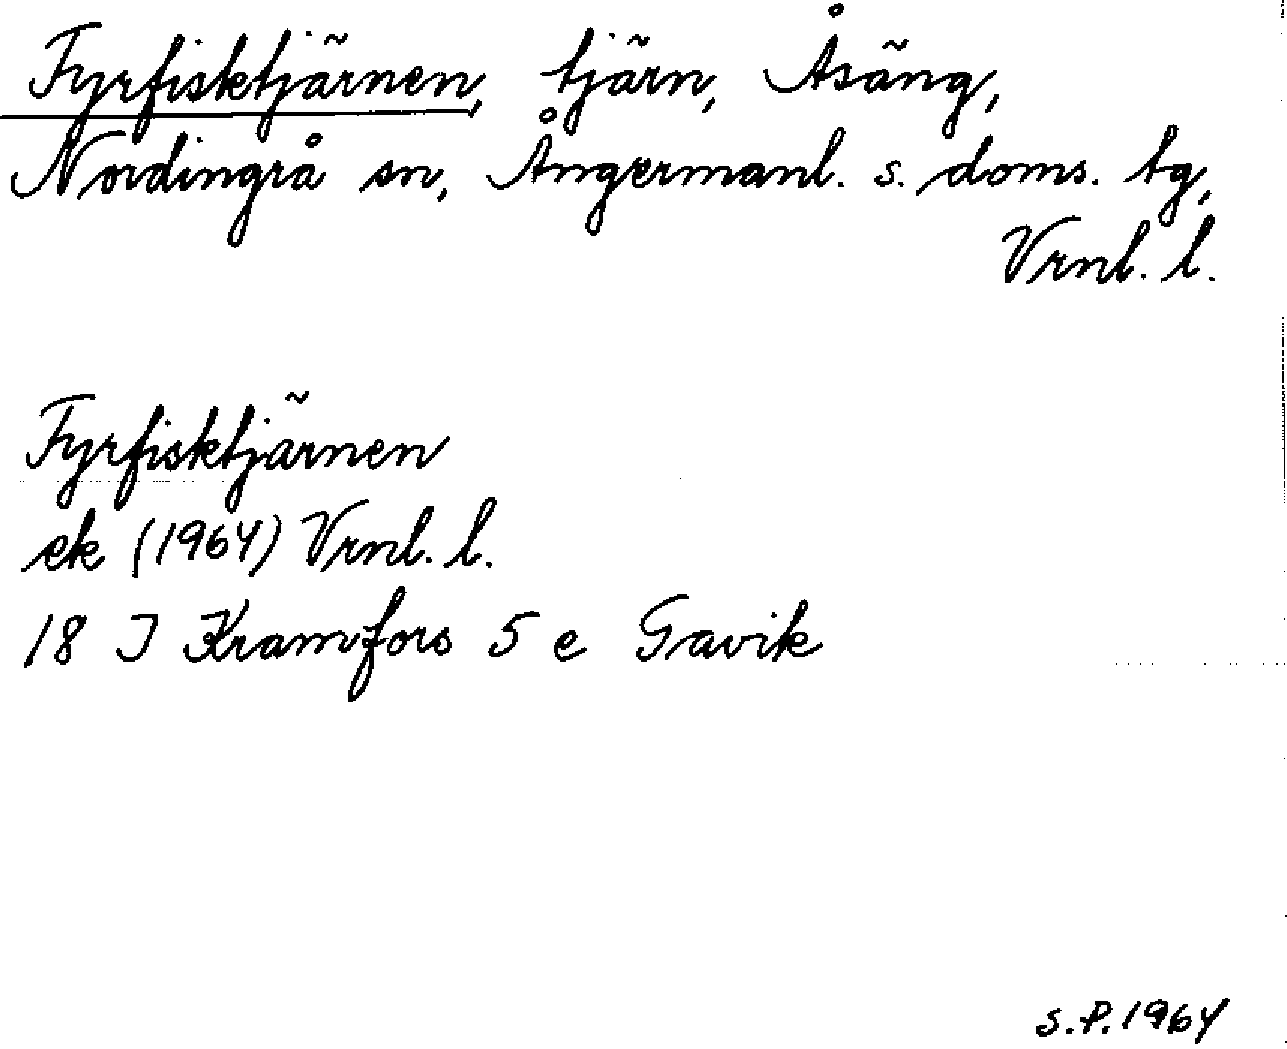 Fyrfisktjärnen, tjärn, Åsäng,
Nordingrå sn, Ångermanl. s. doms. tg,
Vrnl. l.
Fyrfisktjärnen
ek (1964) Vrnl. l.
18 I Kramfors 5 e Gavik
S.P. 1964